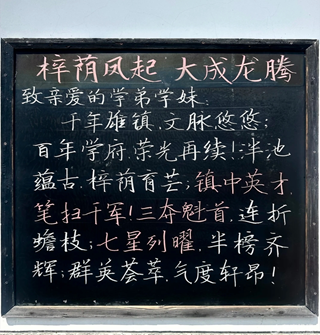 梓荫凤起 大成龙腾
致亲爱的学弟学妹:
千年雄镇,文脉悠悠;
百年学府,荣光再续!泮池
蕴古,梓荫育芸;镇中英才,
笔扫千军!三夺魁首,连折
蟾枝;七星列曜,半榜齐
辉;群英荟萃,气度轩昂!